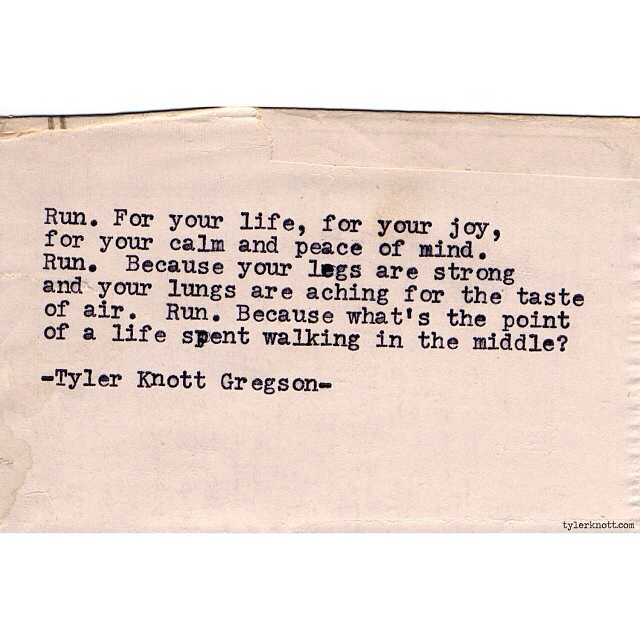 Run. For your life, for your joy,
for your calm and peace of mind.
Run. Because your legs are strong
and your lungs are aching for the taste
of air. Run. Because what's the point
of a life spent walking in the middle?
-Tyler Knott Gregson-
tylerknott.com